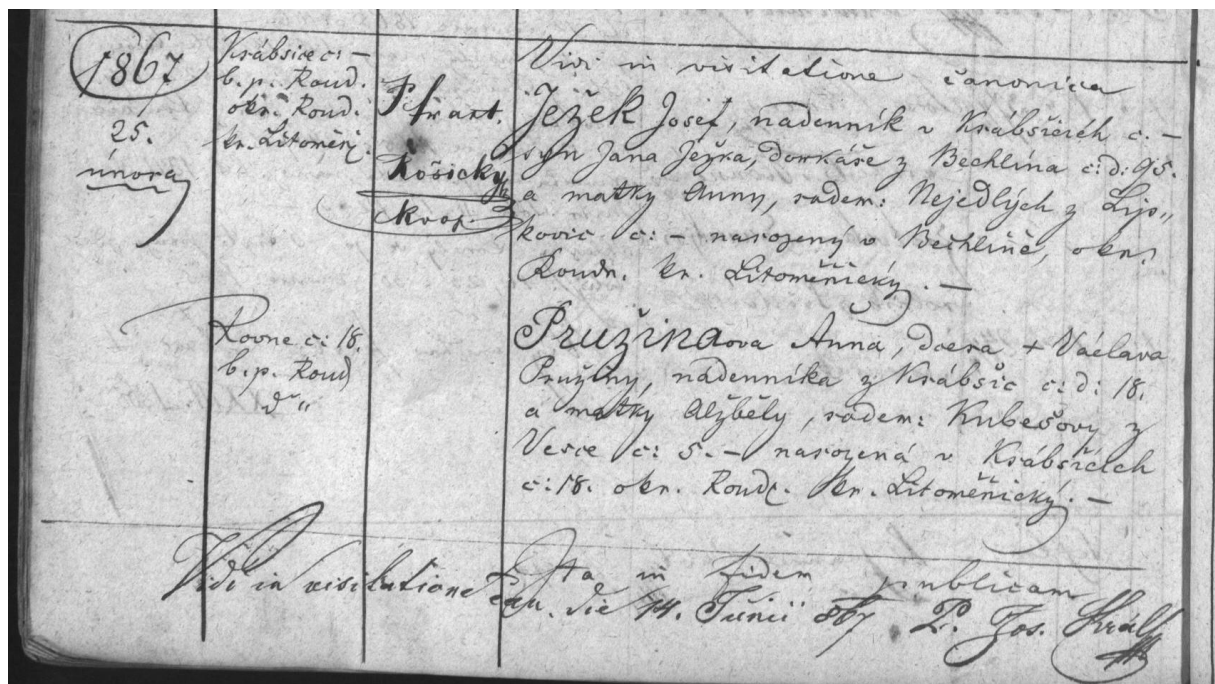 1867
25.
února
Krábsice c: –
b. p. Roud.
okr. Roud.
kr. Litoměř.
P. Frant.
Košický
koop.
Vidi in visitatione canonica
Ježek Josef, nadenník v Krábšicích c. –
syn Jana Ježka, domkáře z Bechlína c: d: 95.
a matky Anny, rodem: Nejedlých z Lijs„
kovic c: – narozený v Bechlíně, okr.
Roudn. kr. Litoměřický. –
Rovne c: 18.
b. p. Roud
d° „
Pružinaova Anna, dcera + Václava
Pružiny, nádenníka z Krábšic c: d: 18.
a matky Alžběty, rodem: Kubešovy z
Vesce c: 5. – narozená v Krábšicích
c: 18. okr. Roud. kr. Litoměřický. –
Ita in fidem publicam
Vidi in visitatione can. die 14. Junii 867 P. Jos. Král